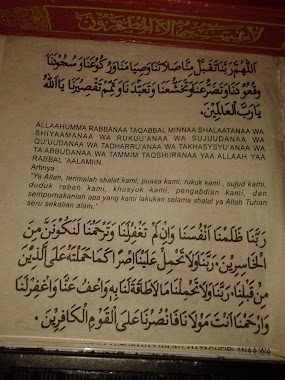 لا يمسه الا المطهرون
اَللّٰهُمَّ رَبَّنَا تَقَبَّلْ مِنَّا صَلَاتَنَا وَصِيَامَنَا وَرُكُوْعَنَا وَسُجُوْدَنَا
وَقُعُوْدَنَا وَتَضَرُّعَنَا وَتَخَشُّعَنَا وَتَعَبُّدَنَا وَتَمِّمْ تَقْصِيْرَنَا يَا اَللهُ
يَارَبَّ الْعَالَمِيْنَ.
ALLAAHUMMA RABBANAA TAQABBAL MINNAA SHALAATANAA WA
SHIYAAMANAA WA RUKUU'ANAA WA SUJUUDANAA WA
QU'UUDANAA WA TADHARRU'ANAA WA TAKHASYSYU'ANAA WA
TA'ABBUDANAA WA TAMMIM TAQSHIIRANAA YAA ALLAAH YAA
RABBAL 'AALAMIIN.
Artinya :
"Ya Allah, terimalah shalat kami, puasa kami, rukuk kami, sujud kami,
duduk rebah kami, khusyuk kami, pengabdian kami, dan
sempurnakanlah apa yang kami lakukan selama shalat ya Allah Tuhan
seru sekalian alam."
رَبَّنَا ظَلَمْنَا اَنْفُسَنَا وَاِنْ لَمْ تَغْفِرْلَنَا وَتَرْحَمْنَا لَنَكُوْنَنَّ مِنَ
الْخَاسِرِيْنَ. رَبَّنَا وَلَا تَحْمِلْ عَلَيْنَا اِصْرًا كَمَا حَمَلْتَهُ عَلَى الَّذِيْنَ
مِنْ قَبْلِنَا. رَبَّنَا وَلَا تُحَمِّلْنَا مَالَا طَاقَةَ لَنَا بِهِ وَاعْفُ عَنَّا وَاغْفِرْلَنَا
وَارْحَمْنَا اَنْتَ مَوْلَانَا فَانْصُرْنَا عَلَى الْقَوْمِ الْكَافِرِيْنَ.